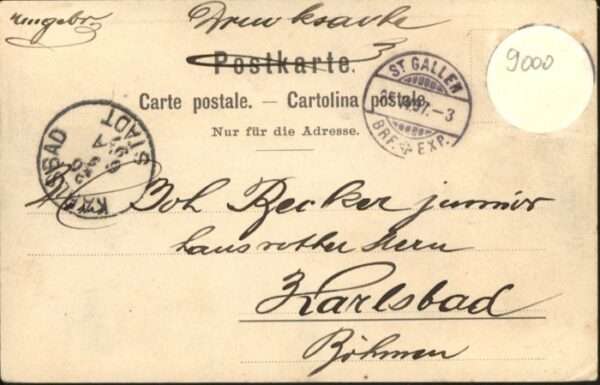 Drucksache
Postkarte.
9000
ST GALLEN
Carte postale. — Cartolina postale.
97.-3
BRF. EXP.
Nur für die Adresse.
KARLSBAD
STADT
Joh Becker junior
haus rother Stern
Karlsbad
Böhmen